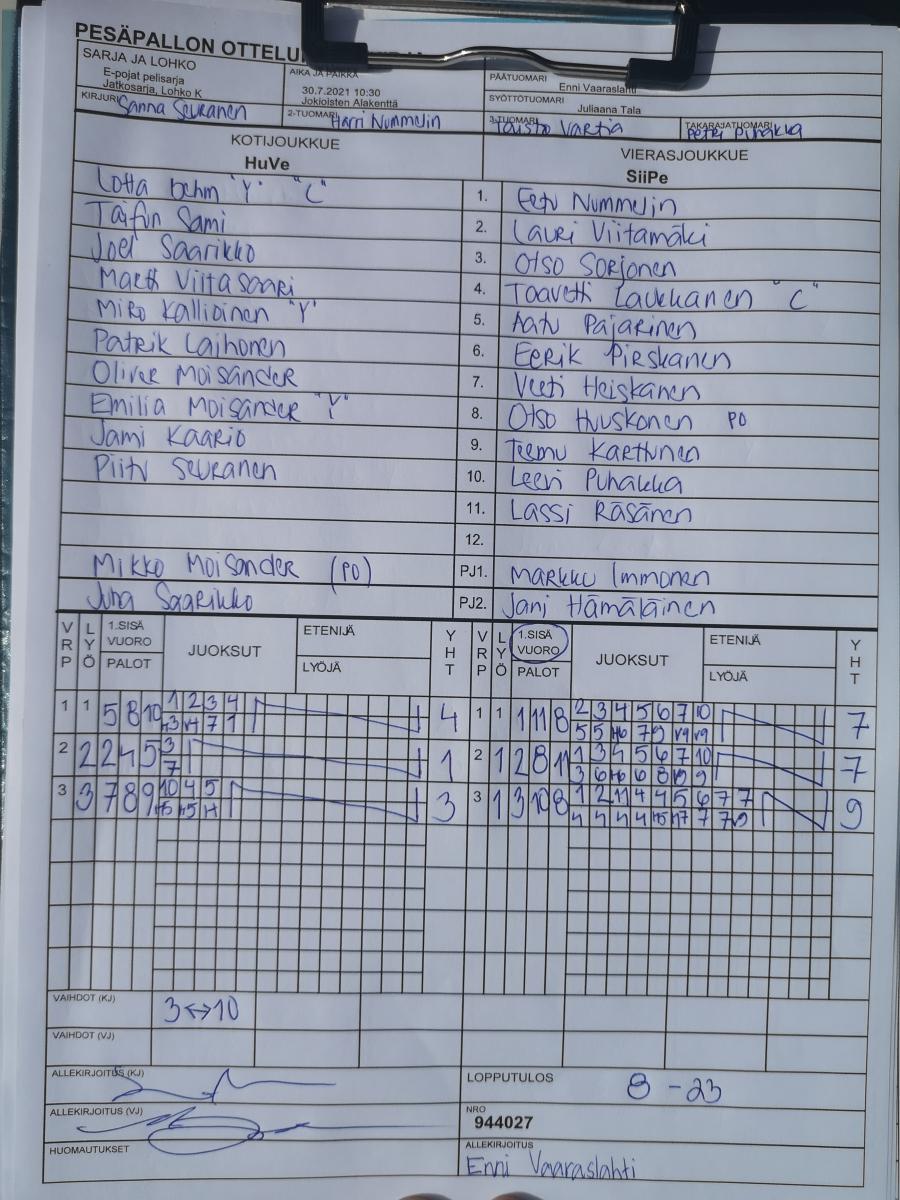 PESÄPALLON OTTELU
SARJA JA LOHKO
E-pojat pelisarja
Jatkosarja, Lohko K
AIKA JA PAIKKA
30.7.2021 10:30
Jokioisten Alakenttä
PÄÄTUOMARI
Enni Vaaraslahti
SYÖTTÖTUOMARI
Juliaana Tala
KIRJURI Sanna Seuranen
2-TUOMARI Harri Nummelin
3-TUOMARI Taisto Vartia
TAKARAJATUOMARI Petri Puhakka
KOTIJOUKKUE
HuVe
VIERASJOUKKUE
SiiPe
Lotta Dehm "Y" "C" 1. Eetu Nummelin
Taifun Sami 2. Lauri Viitamäki
Joel Saarikko 3. Otso Sorjonen
Martti Viitasaari 4. Taavetti Laukkanen "C"
Miro Kallioinen "Y" 5. Aatu Pajarinen
Patrik Laihonen 6. Eerik Pirskanen
Oliver Moisander 7. Veeti Heiskanen
Emilia Moisander "Y" 8. Otso Huuskonen PO
Jami Kaario 9. Teemu Karttunen
Piitu Seuranen 10. Leevi Puhakka
11. Lassi Räsänen
12.
Mikko Moisander (PO) PJ1. Markku Immonen
Juha Saarikko PJ2. Jani Hämäläinen
VRP LYÖ 1.SISÄ VUORO PALOT JUOKSUT ETENIJÄ LYÖJÄ YHT VRP LYÖ 1.SISÄ VUORO PALOT JUOKSUT ETENIJÄ LYÖJÄ YHT
1 1 5 8 10 1 2 3 4 4 1 1 1 11 8 2 3 4 5 6 7 10 7
2 2 2 4 5 3 1 2 1 2 8 11 1 3 4 5 6 7 10 7
7
3 3 7 8 9 10 4 5 3 3 1 3 10 8 1 2 11 4 4 5 6 7 7 9
VAIHDOT (KJ) 3↔10
VAIHDOT (VJ)
ALLEKIRJOITUS (KJ)
LOPPUTULOS 8 - 23
ALLEKIRJOITUS (VJ)
NRO
944027
HUOMAUTUKSET
ALLEKIRJOITUS
Enni Vaaraslahti